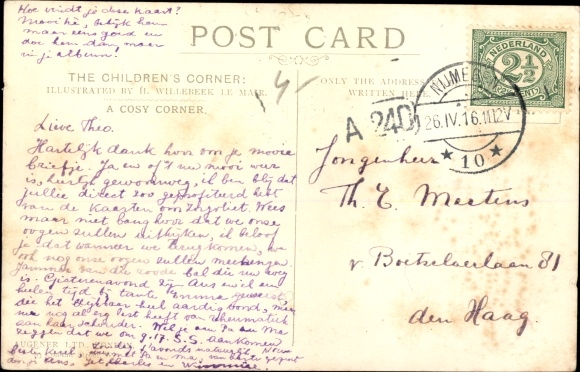 Hoe vindt je deze kaart?
Mooi hè, bekijk hem
maar eens goed en
doe hem dan, maar
in je album!
POST CARD
THE CHILDREN'S CORNER:
ILLUSTRATED BY H. WILLEBEEK LE MAIR
A COSY CORNER.
ONLY THE ADDRESS
WRITTEN HERE
NEDERLAND
2½
CENT
NIJMEGEN
26.IV.16.11-12V
10
A 240
Lieve Theo.
Hartelijk dank hoor om je mooie
briefje. Ja en of 't nu mooi weer
is, heerlijk gewoonweg, ik ben blij dat
jullie direct zoo geprofiteerd hebt
van de kaarten om Zorgvliet. Wees
maar niet bang hoor dat we onze
oogen zullen uitkijken, ik beloof
je dat wanneer we terugkomen, we
ook nog onze oogen zullen meebrengen.
Jammer van die roode bal die nu weg
is. Gisterenavond zijn Ans en ik een
heelen tijd bij tante Emma geweest,
die het blijkbaar heel aardig vond, maar
nu nog al erg last heeft van rheumatiek
aan haar schouder. Wil je aan Pa en Ma
zeggen dat we om 9.17 S.S. aankomen
AUGENER LTD. 's avonds natuurlijk. Nou
beste kerel,
Jongenheer
Th. E. Mertens
v. Boetzelaerlaan 81
den Haag.